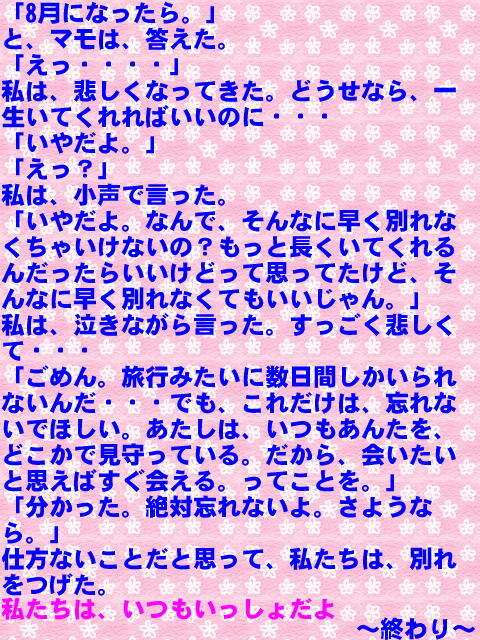 「8月になったら。」
と、マモは、答えた。
「えっ・・・・」
私は、悲しくなってきた。どうせなら、一
生いてくれればいいのに・・・
「いやだよ。」
「えっ？」
私は、小声で言った。
「いやだよ。なんで、そんなに早く別れな
くちゃいけないの？もっと長くいてくれる
んだったらいいけどって思ってたけど、そ
んなに早く別れなくてもいいじゃん。」
私は、泣きながら言った。すっごく悲しく
て・・・
「ごめん。旅行みたいに数日間しかいられ
ないんだ・・・でも、これだけは、忘れな
いでほしい。あたしは、いつもあんたを、
どこかで見守っている。だから、会いたい
と思えばすぐ会える。ってことを。」
「分かった。絶対忘れないよ。さような
ら。」
仕方ないことだと思って、私たちは、別れ
をつげた。
私たちは、いつもいっしょだよ
～終わり～